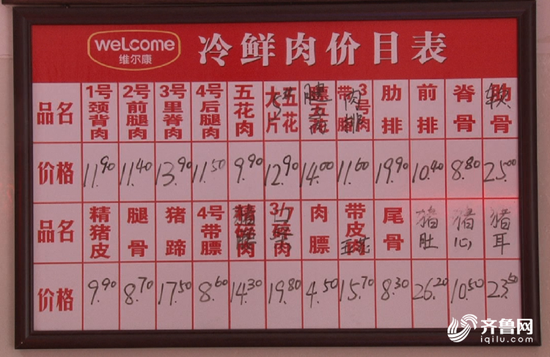 welcome
维尔康
冷鲜肉价目表
品名 1号颈背肉 2号前腿肉 3号里脊肉 4号后腿肉 五花肉 五花 带膘3号肉 肋排 前排 脊骨
价格 11.90 11.40 13.90 11.50 9.90 12.90 14.00 11.60 19.90 10.40 8.80 25.00
品名 精猪皮 腿骨 猪蹄 4号带膘 肉膘 带皮肉 尾骨 猪肚 猪心 猪耳
价格 9.90 8.70 17.50 8.60 14.30 19.80 4.50 15.70 8.30 26.20 10.50 23.50
齐鲁网
iqilu.com